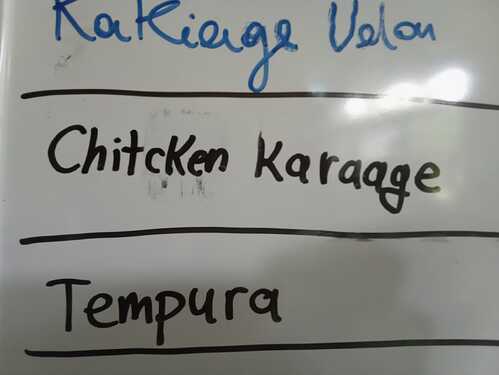 Kakiage Udon
Chitcken Karaage
Tempura